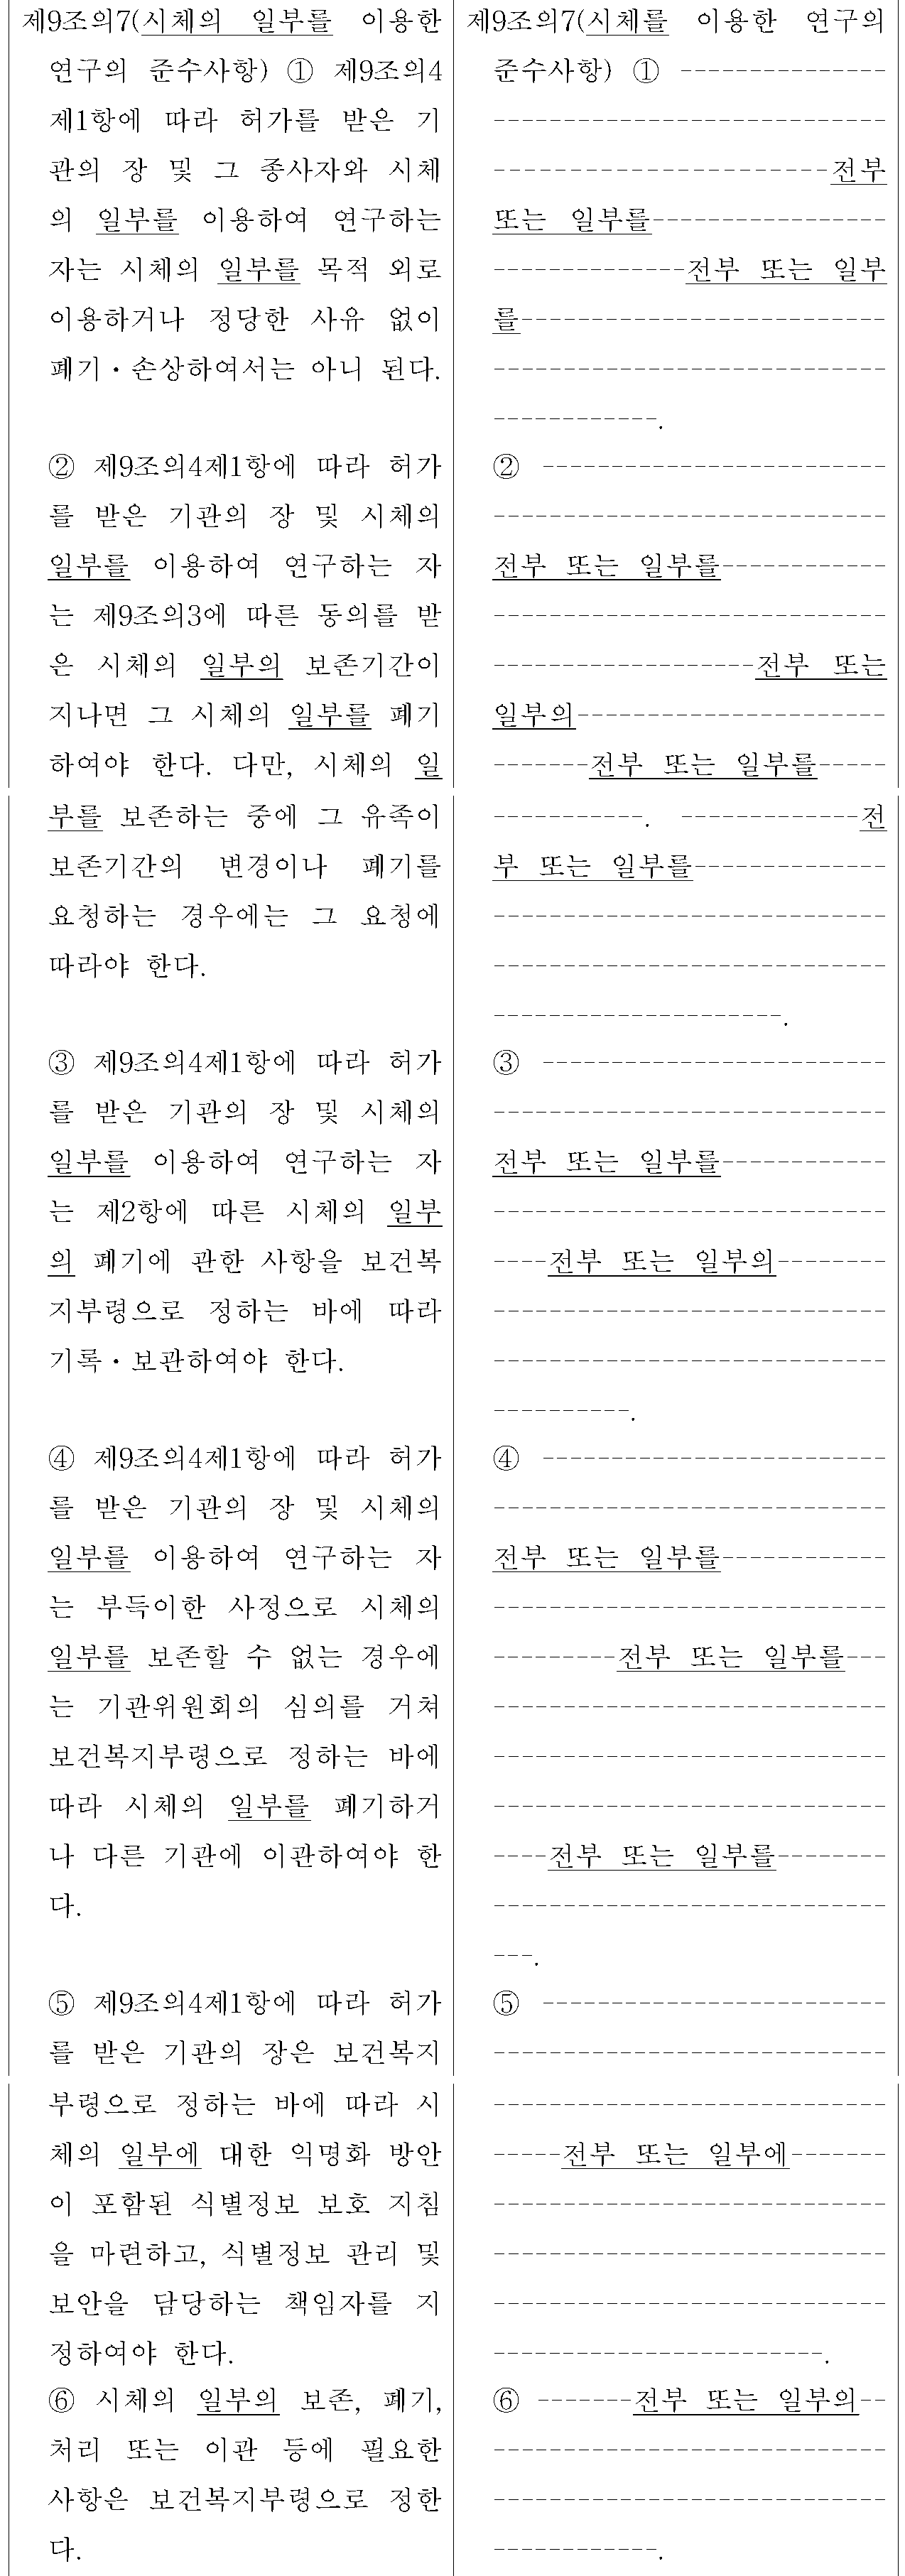 제9조의7(시체의 일부를 이용한
연구의 준수사항) ① 제9조의4
제1항에 따라 허가를 받은 기
관의 장 및 그 종사자와 시체
의 일부를 이용하여 연구하는
자는 시체의 일부를 목적 외로
이용하거나 정당한 사유 없이
폐기·손상하여서는 아니 된다.
② 제9조의4제1항에 따라 허가
를 받은 기관의 장 및 시체의
일부를 이용하여 연구하는 자
는 제9조의3에 따른 동의를 받
은 시체의 일부의 보존기간이
지나면 그 시체의 일부를 폐기
하여야 한다. 다만, 시체의 일
부를 보존하는 중에 그 유족이
보존기간의 변경이나 폐기를
요청하는 경우에는 그 요청에
따라야 한다.
③ 제9조의4제1항에 따라 허가
를 받은 기관의 장 및 시체의
일부를 이용하여 연구하는 자
는 제2항에 따른 시체의 일부
의 폐기에 관한 사항을 보건복
지부령으로 정하는 바에 따라
기록·보관하여야 한다.
④ 제9조의4제1항에 따라 허가
를 받은 기관의 장 및 시체의
일부를 이용하여 연구하는 자
는 부득이한 사정으로 시체의
일부를 보존할 수 없는 경우에
는 기관위원회의 심의를 거쳐
보건복지부령으로 정하는 바에
따라 시체의 일부를 폐기하거
나 다른 기관에 이관하여야 한
다.
⑤ 제9조의4제1항에 따라 허가
를 받은 기관의 장은 보건복지
부령으로 정하는 바에 따라 시
체의 일부에 대한 익명화 방안
이 포함된 식별정보 보호 지침
을 마련하고, 식별정보 관리 및
보안을 담당하는 책임자를 지
정하여야 한다.
⑥ 시체의 일부의 보존, 폐기,
처리 또는 이관 등에 필요한
사항은 보건복지부령으로 정한
다.
제9조의7(시체를 이용한 연구의
준수사항) ① ---------------
----------------------------
------------------------전부
또는 일부를-----------------
--------------전부 또는 일부
를--------------------------
----------------------------
------------.
② -------------------------
----------------------------
전부 또는 일부를------------
----------------------------
-------------------전부 또는
일부의----------------------
-------전부 또는 일부를-----
-----------. -------------전
부 또는 일부를--------------
----------------------------
----------------------------
---------------------.
③ -------------------------
----------------------------
전부 또는 일부를------------
----------------------------
----전부 또는 일부의--------
----------------------------
----------------------------
----------.
④ -------------------------
----------------------------
전부 또는 일부를------------
----------------------------
---------전부 또는 일부를---
----------------------------
----------------------------
----------------------------
----전부 또는 일부를--------
----------------------------
---.
⑤ -------------------------
----------------------------
----------------------------
-----전부 또는 일부에-------
----------------------------
----------------------------
----------------------------
------------------------.
⑥ -------전부 또는 일부의--
----------------------------
----------------------------
------------.